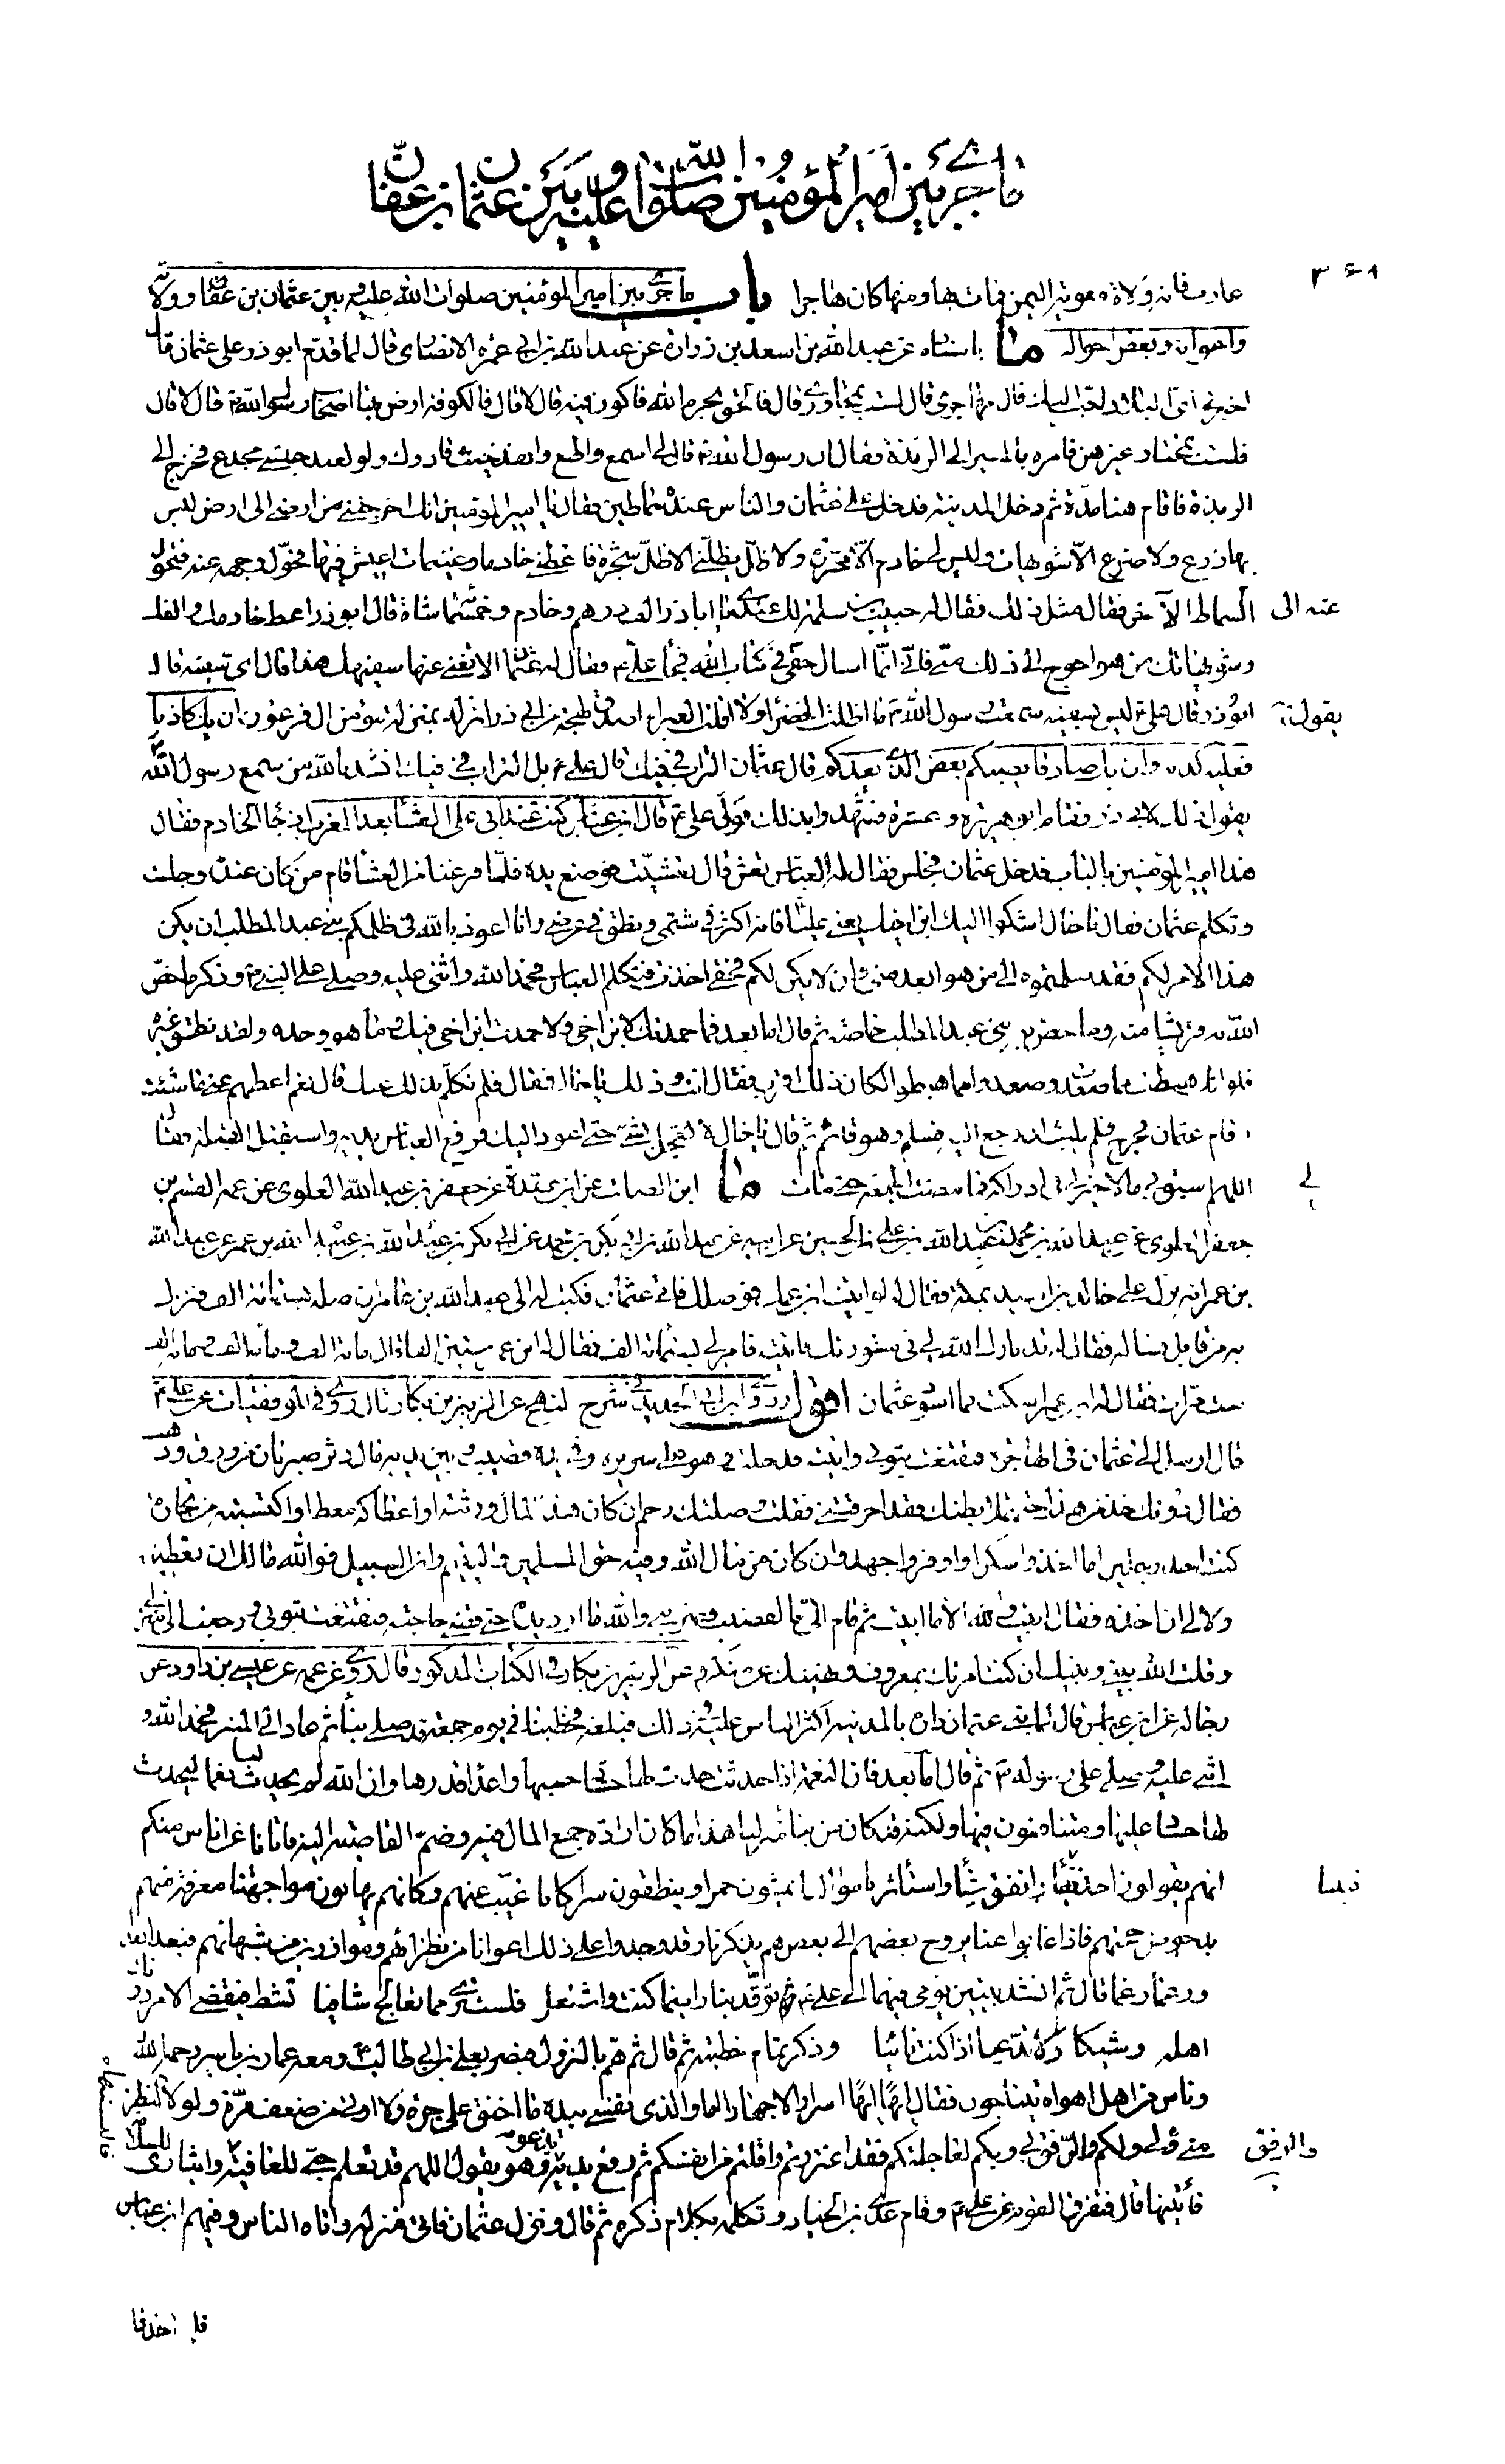 ما جرى بين امير المؤمنين صلوات الله عليه وبين عثمان بن عفان
٣٤٨
معوية اليمن فمات بها ومنها كان هاجرا باب ما جرى بين امير المؤمنين صلوات الله عليه وبين عثمان بن عفان وولاته
واعوانه وبعض احواله ما باسناده عن عبد الله بن اسعد بن زرارة عن عبد الله بن ابي عمرة الانصارى قال لما قدم ابو ذر على عثمان قال
اخبرني اى البلاد احب اليك قال مهاجرى قال لست بمجاورى قال فالحق بحرم الله فاكون فيه قال لا قال فالكوفة ارض بها اصحاب رسول الله قال لا قال
فلست بمختار غيرهن فامره بالمسير الى الربذة فقال ان رسول الله قال لى اسمع واطع وانفذ حيث قادوك ولو لعبد حبشى مجدع فخرج الى
الربذة فاقام هنا مدة ثم دخل المدينة فدخل على عثمان والناس عنده سماطين فقال يا امير المؤمنين انك اخرجتنى من ارضى الى ارض ليس
بها زرع ولا ضرع الا شويهات وليس لى خادم الا محررة ولا ظل يظلنى الا ظل شجرة فاعطنى خادما وغنيمات اعيش فيها فحول وجهه عنه فتحول
عنه الى السماط الآخر فقال مثل ذلك فقال له حبيب بن سلمة لك عندى يا ابا ذر الف درهم وخادم وخمسمائة شاة قال ابو ذر اعط خادمك والفك
وشويهاتك من هو احوج الى ذلك منى فانى انما اسال حقى فى كتاب الله فجاء على فقال له عثمان الا تغنى عنا سفيهك هذا قال اى سفيه قال
ابو ذر قال على ليس بسفيه سمعت رسول الله يقول ما اظلت الخضراء ولا اقلت الغبراء اصدق لهجة من ابى ذر انزله بمنزلة مؤمن ال فرعون ان يك كاذبا
فعليه كذبه وان يك صادقا يصبكم بعض الذى يعدكم قال عثمان التراب فى فيك قال على بل التراب فى فيك انشد بالله من سمع رسول الله
يقول ذلك لابى ذر فقام ابو هريرة وعشرة فشهدوا بذلك فولى على قال ابن عباس كنت عند ابى على العشاء بعد المغرب اذ جاء الخادم فقال
هذا امير المؤمنين بالباب فدخل عثمان فجلس فقال له العباس تعش قال تعشيت فوضع يده فلما فرغنا من العشاء قام من كان عنده وجلست
وتكلم عثمان فقال يا خال اشكو اليك ابن اخيك يعنى عليا فانه اكثر فى شتمى ونطق فى عرضى وانا اعوذ بالله فى ظلمكم بنى عبد المطلب ان يكن
هذا الامر لكم فقد سلمتموه الى من هو ابعد منى وان لا يكن لكم فحقى اخذت فتكلم العباس فحمد الله واثنى عليه وصلى على النبى وذكر ما خص
الله به قريشا منه وما خص به بنى عبد المطلب خاصة ثم قال اما بعد فما حمدتك لابن اخى ولا حمدت ابن اخى فيك وما هو وحده ولقد نطق غيره
فلو انك هبطت مما صعدت وصعدوا مما هبطوا لكان ذلك اقرب فقال انت وذلك يا خال فقال فلم تكلم بذلك عنك قال نعم اعطهم عنى ما شئت
وقام عثمان فخرج فلم يلبث ان رجع اليه فسلم وهو قائم ثم قال يا خال لا تعجل بشىء حتى اعود اليك فرفع العباس يديه واستقبل القبلة فقال
اللهم اسبق لى ما لا خير لى فى ادراكه فما مضت الجمعة حتى مات ما ابن الصلت عن ابن عقدة عن جعفر بن عبد الله العلوى عن عمه القسم بن
جعفر العلوى عن عبد الله بن محمد بن عبد الله بن على بن الحسين عن ابيه عن عبد الله بن ابى بكر بن محمد
بن عمر انه نزل على خالد بن اسيد بمكة فقال له لو اتيت ابن عمك فوصلك فاتى عثمان فكتب له الى عبد الله بن عامر ان صله بستمائة الف فنزل
به من قابل فساله فقال له قد بارك الله لى فى مشورتك فاتيته فامر لى بستمائة الف فقال له ابن عمر
فقال له ابن عمر اسكت فما اسود عثمان اقول روى ابن ابى الحديد فى شرح النهج عن الزبير بن بكار قال روى فى الموفقيات عن على
قال ارسل الى عثمان فى الهاجرة فتقنعت بثوبى واتيته فدخلت وهو على سريره وفى يده قضيب وبين يديه مال دثر صبرتان من ورق وذهب
فقال دونك خذ من هذا حتى تملا بطنك فقد احرقتنى فقلت وصلتك رحم ان كان هذا المال ورثته او اعطاكه معط او اكتسبته من تجارة
كنت احد رجلين اما اخذ واشكر او اوفر واجهد وان كان من مال الله وفيه حق المسلمين واليتيم وابن السبيل فوالله ما لك ان تعطينيه
ولا لى ان اخذه فقال ابيت والله الا ما ابيت ثم قام الى بالقضيب فضربنى والله ما ارد يده حتى قضى حاجته فتقنعت بثوبى ورجعت الى منزلى
وقلت الله بينى وبينك ان كنت امرتك بمعروف ونهيتك عن منكر وعن الزبير بن بكار فى الكتاب المذكور قال روى عن عمه عن عيسى بن داود عن
رجاله عن ابن عباس قال لما بنى عثمان داره بالمدينة اكثر الناس عليه فى ذلك فبلغه فخطبنا فى يوم جمعة ثم صلى بنا ثم عاد الى المنبر فحمد الله و
اثنى عليه وصلى على رسوله ثم قال اما بعد فان النعمة اذا حدثت حدث لها حساد حسبها واعداء قدرها وان الله لم يحدث لنا نعما ليحدث
لها حساد عليها ومتنافسون فيها ولكنه قد كان من بناء منزلنا هذا ما كان ارادة جمع المال فيه وضم القاصية اليه فاتانا عن اناس منكم
انهم يقولون اخذ فيئنا وانفق شيئنا واستاثر باموالنا يمشون خمرا وينطقون سرا كانا غيب عنهم وكانهم يهابون مواجهتنا معرفة منهم
بدحوض حجتهم فاذا غابوا عنا يروح بعضهم الى بعض هم يذكرنا وقد وجدوا على ذلك اعوانا من نظرائهم وموازرين من شبهائهم فبعدا بعدا
ورغما رغما قال ثم انشد بيتين يومى فيهما الى على توقد بنار اينما كنت واشتعل فلست ترى مما تعالج شافيا تشط فيقضى الامر دون
اهله وشيكا ولا تدعى اذا كنت نائيا وذكر تمام خطبته ثم قال ثم هم بالنزول فبصر بعلى بن ابى طالب ومعه عمار بن ياسر رحمه الله
وناس من اهل هواه يتناجون فقال ايها ايها اسرارا لا جهارا اما والذى نفسى بيده ما احنق على جرة ولا اوتى من ضعف مرة ولولا النظر
منى ولى ولكم والرفق بى وبكم لعاجلتكم فقد اغتررتم واقلتم من انفسكم ثم رفع يديه يدعو وهو يقول اللهم قد تعلم حبى للعافية وايثارى للسلامة
فآتنيها قال فتفرق القوم عن على وقام عدى بن الخيار وتكلم بكلام ذكره ثم قال ونزل عثمان فاتى منزله واتاه الناس وفيهم ابن عباس